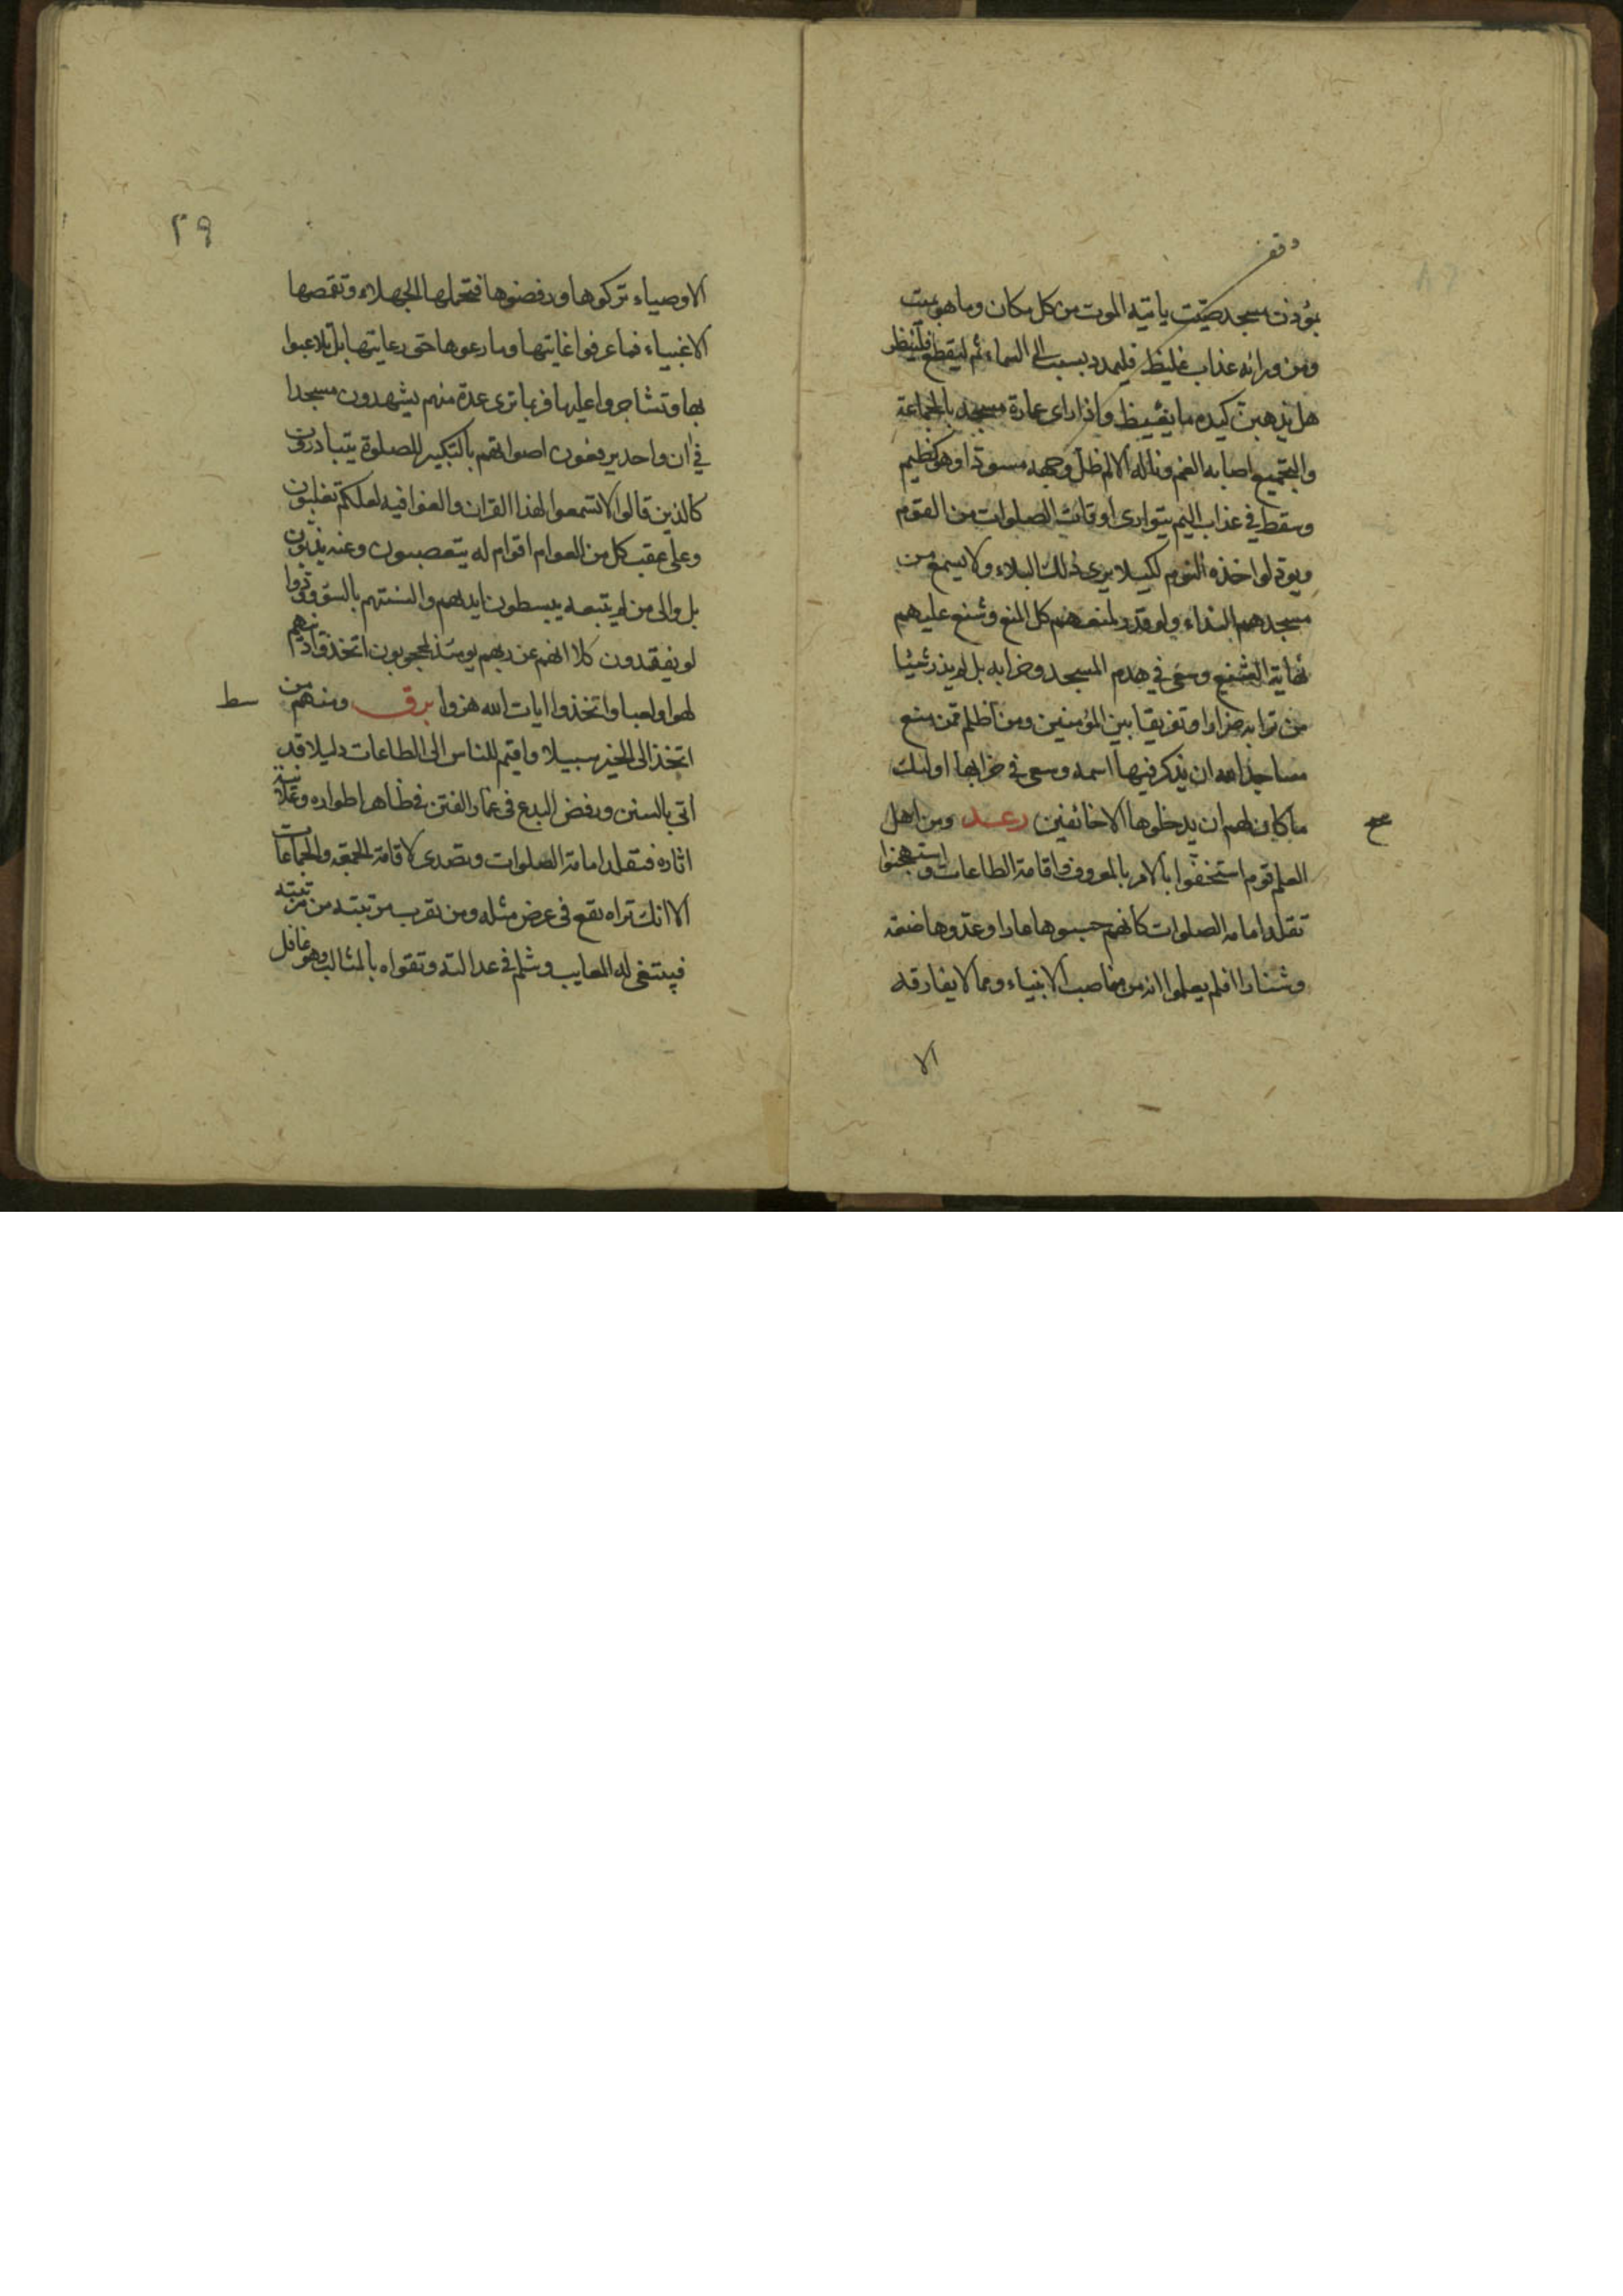 وقف
بمؤذن مسجد صيّت ياتيه الموت من كل مكان وما هو بميت
ومن ورائه عذاب غليظ فليمدد بسبب الى السماء ثم ليقطع فلينظر
هل يذهبن كيده ما يغيظ واذا راى عمارة مسجد بالجماعة
والتجميع اصابه الغم وناله الالم ظل وجهه مسودا وهو كظيم
وسقط في عذاب اليم يتوارى اوقات الصلوات من القوم
ويودّ لو اخذه النوم لكيلا يرى ذلك البلاء ولا يسمع من
مسجدهم النداء ولو قدر لمنعهم كل المنع وشنع عليهم
نهاية التشنيع وسعى في هدم المسجد وخرابه بل لم يذر شيئا
من ترابه ضرارا وتفريقا بين المؤمنين ومن اظلم ممن منع
مساجد الله ان يذكر فيها اسمه وسعى في خرابها اولئك
ما كان لهم ان يدخلوها الا خائفين رعد ومن اهل
سح
العلم قوم استخفوا بالامر بالمعروف واقامة الطاعات واستهجنوا
تقلد امامة الصلوات كانهم حسبوها عارا وعدوها ضعة
وشنارا افلم يعلموا انه من مناصب الانبياء ومما لا يفارقه
الا
٢٩
الاوصياء تركوها ورفضوها فتحملها الجهلاء وتقمصها
الاغبياء فما عرفوا غايتها وما رعوها حق رعايتها بل تلاعبوا
بها وتشاجروا عليها فربما ترى عدة منهم يشهدون مسجدا
في ان واحد يرفعون اصواتهم بالتكبير للصلوة يتبادرون
كالذين قالوا لا تسمعوا لهذا القران والغوا فيه لعلكم تغلبون
وعلى عقب كل من العوام اقوام له يتعصبون وعنه يذبّون
بل والى من لم يتبعه يبسطون ايديهم والسنتهم بالسوء وودّوا
لو يفقدون كلا انهم عن ربهم يومئذ لمحجوبون اتخذوا دينهم
لهوا ولعبا واتخذوا ايات الله هزوا برق ومنهم من
سط
اتخذ الى الخير سبيلا واقيم للناس الى الطاعات دليلا قد
اتى بالسنن ورفض البدع في غمار الفتن في ظاهر اطواره وعلانية
اثاره فتقلد امامة الصلوات وتصدى لاقامة الجمعة والجماعات
الا انك تراه يقع في عرض مثله ومن تقرب مرتبته من مرتبته
فيبتغي له المعايب وثلم في عدالته وتقواه بالمثالب وهو غافل